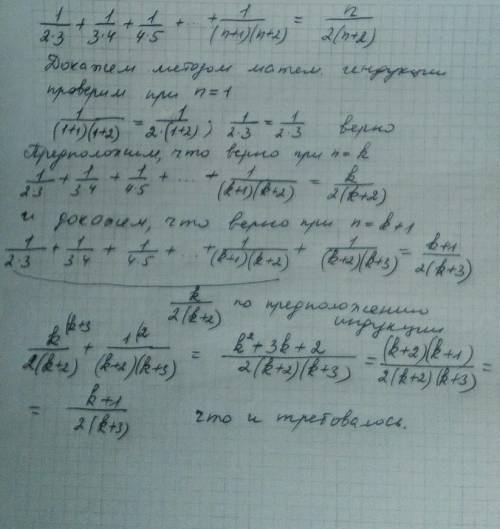 1/(2·3) + 1/(3·4) + 1/(4·5) + ... + 1/((n+1)(n+2)) = n/(2(n+2))
Докажем методом матем. индукции
проверим при n=1
1/((1+1)(1+2)) = 1/(2·(1+2)) ; 1/(2·3) = 1/(2·3) верно
Предположим, что верно при n=k
1/(2·3) + 1/(3·4) + 1/(4·5) + ... + 1/((k+1)(k+2)) = k/(2(k+2))
и докажем, что верно при n=k+1
1/(2·3) + 1/(3·4) + 1/(4·5) + ... + 1/((k+1)(k+2)) + 1/((k+2)(k+3)) = (k+1)/(2(k+3))
k/(2(k+2)) по предположению
индукции
k^(k+3/(2(k+2)) + 1^(2/((k+2)(k+3)) = (k²+3k+2)/(2(k+2)(k+3)) = (k+2)(k+1)/(2(k+2)(k+3)) =
= (k+1)/(2(k+3)) что и требовалось.